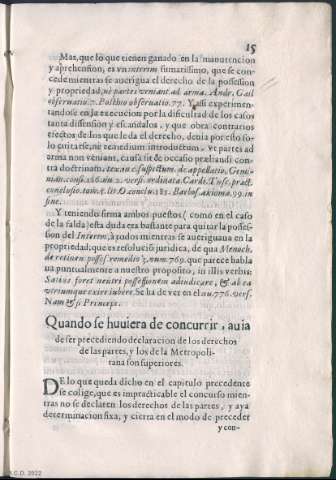 15
Mas, que lo que tienen ganado en la manutencion
y aprehension, es vn interim sumarissimo, que se con-
cede mientras se auerigua el derecho de la possession
y propriedad, nè partes veniant ad arma. Andr. Gail
obseruatio. 7. Posthio obseruatio. 77. Y assi experimen-
tandose en la execucion por la dificultad de los casos
tanta dissension y escandalos, y que obra contrarios
efectos de los que le da el derecho, deuia por esto so-
lo quitarse, nè remedium introductum, vt partes ad
arma non veniant, causa sit & occasio præliandi con-
tra doctrinam, tex. in c. suspectum de appellatio. Gemi-
nian. cons. 186. nu. 2. vers. ordinata. Cardi. Tusc. pract.
conclusio. tom. 5. lit. O. conclu. 181. Barbos. axioma. 99. in
fine.
Y teniendo firma ambos puestos (como en el caso
de la falda) esta duda era bastante para quitar la posses-
sion del Interim, à todos mientras se aueriguaua en la
propriedad, que es resolucion juridica, de qua Menoch.
de retinen. posses. remedio 3. num. 769. que parece habla
ua puntualmente a nuestro proposito, in illis verbis:
Satius foret neutri possessionem adiudicare, & ab ea
vtrumque exire iubere. Se ha de ver en el nu. 776. vers.
Nam & si Princeps.
Quando se huuiera de concurrir, auia
de ser precediendo declaracion de los derechos
de las partes, y los de la Metropoli-
tana son superiores.
DE lo que queda dicho en el capitulo precedente
se colige, que es impracticable el concurso mien-
tras no se declaren los derechos de las partes, y aya
determinacion fixa, y cierta en el modo de preceder
y con-
A.C.D. 2022